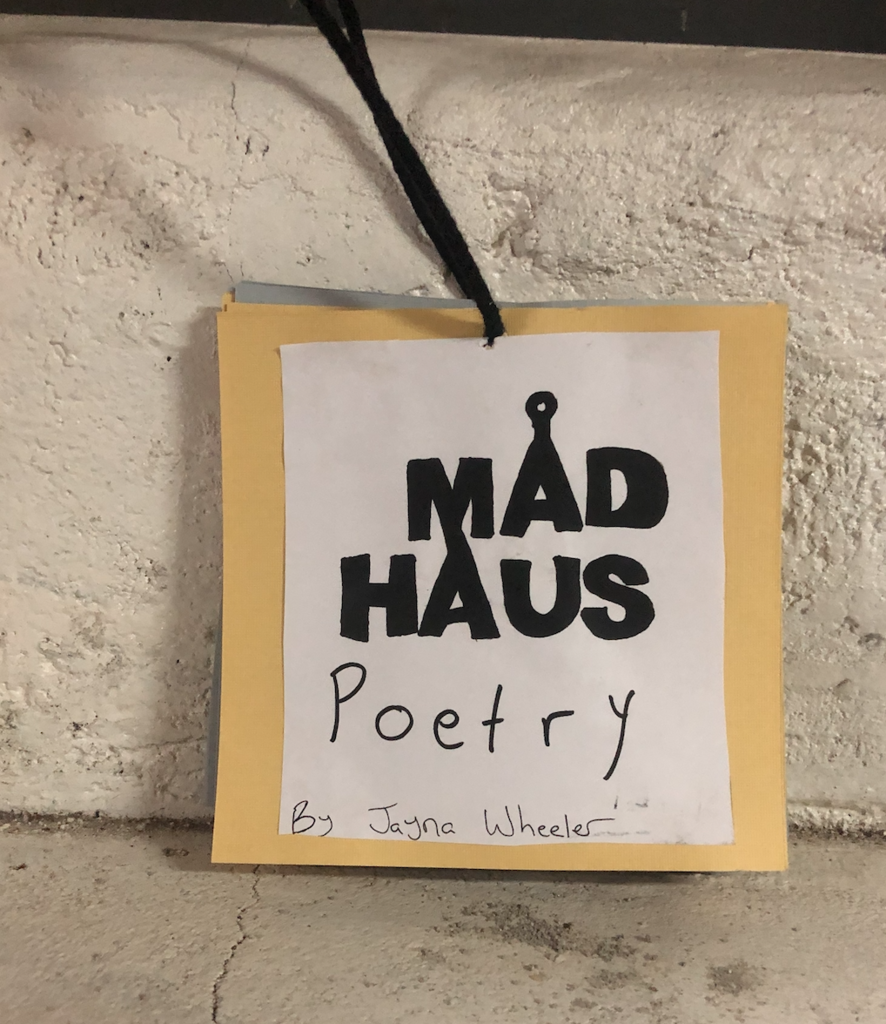 MAD
HAUS
Poetry
By Jayna Wheeler